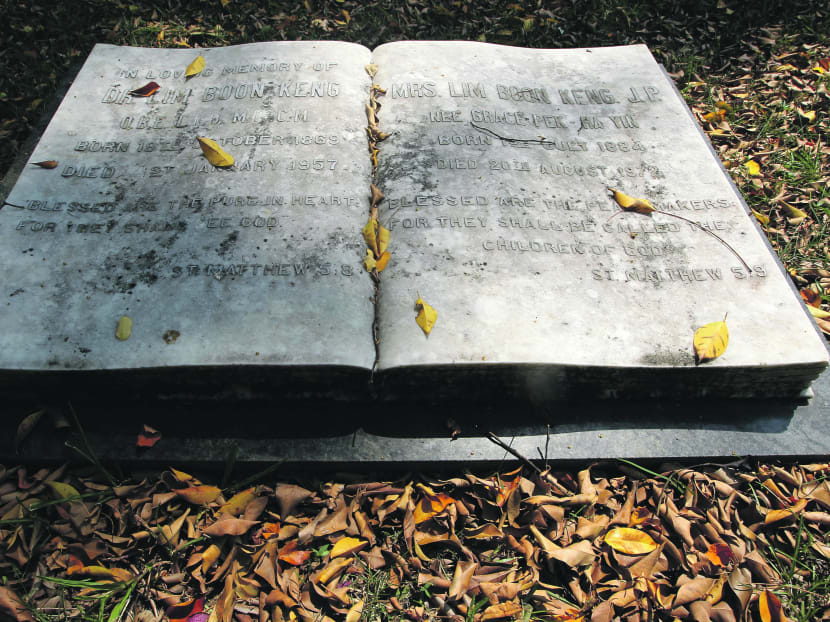 IN LOVING MEMORY OF
DR LIM BOON KENG
O.B.E. L.L.D. M.B. C.M
BORN 18TH OCTOBER 1869
DIED 1ST JANUARY 1957
BLESSED ARE THE PURE IN HEART,
FOR THEY SHALL SEE GOD.
ST. MATTHEW 5:8
MRS. LIM BOON KENG. J.P.
NEE GRACE PEK HA YIN
BORN AUGUST 1884
DIED 20TH AUGUST
BLESSED ARE THE PEACEMAKERS:
FOR THEY SHALL BE CALLED THE
CHILDREN OF GOD.
ST. MATTHEW 5:9